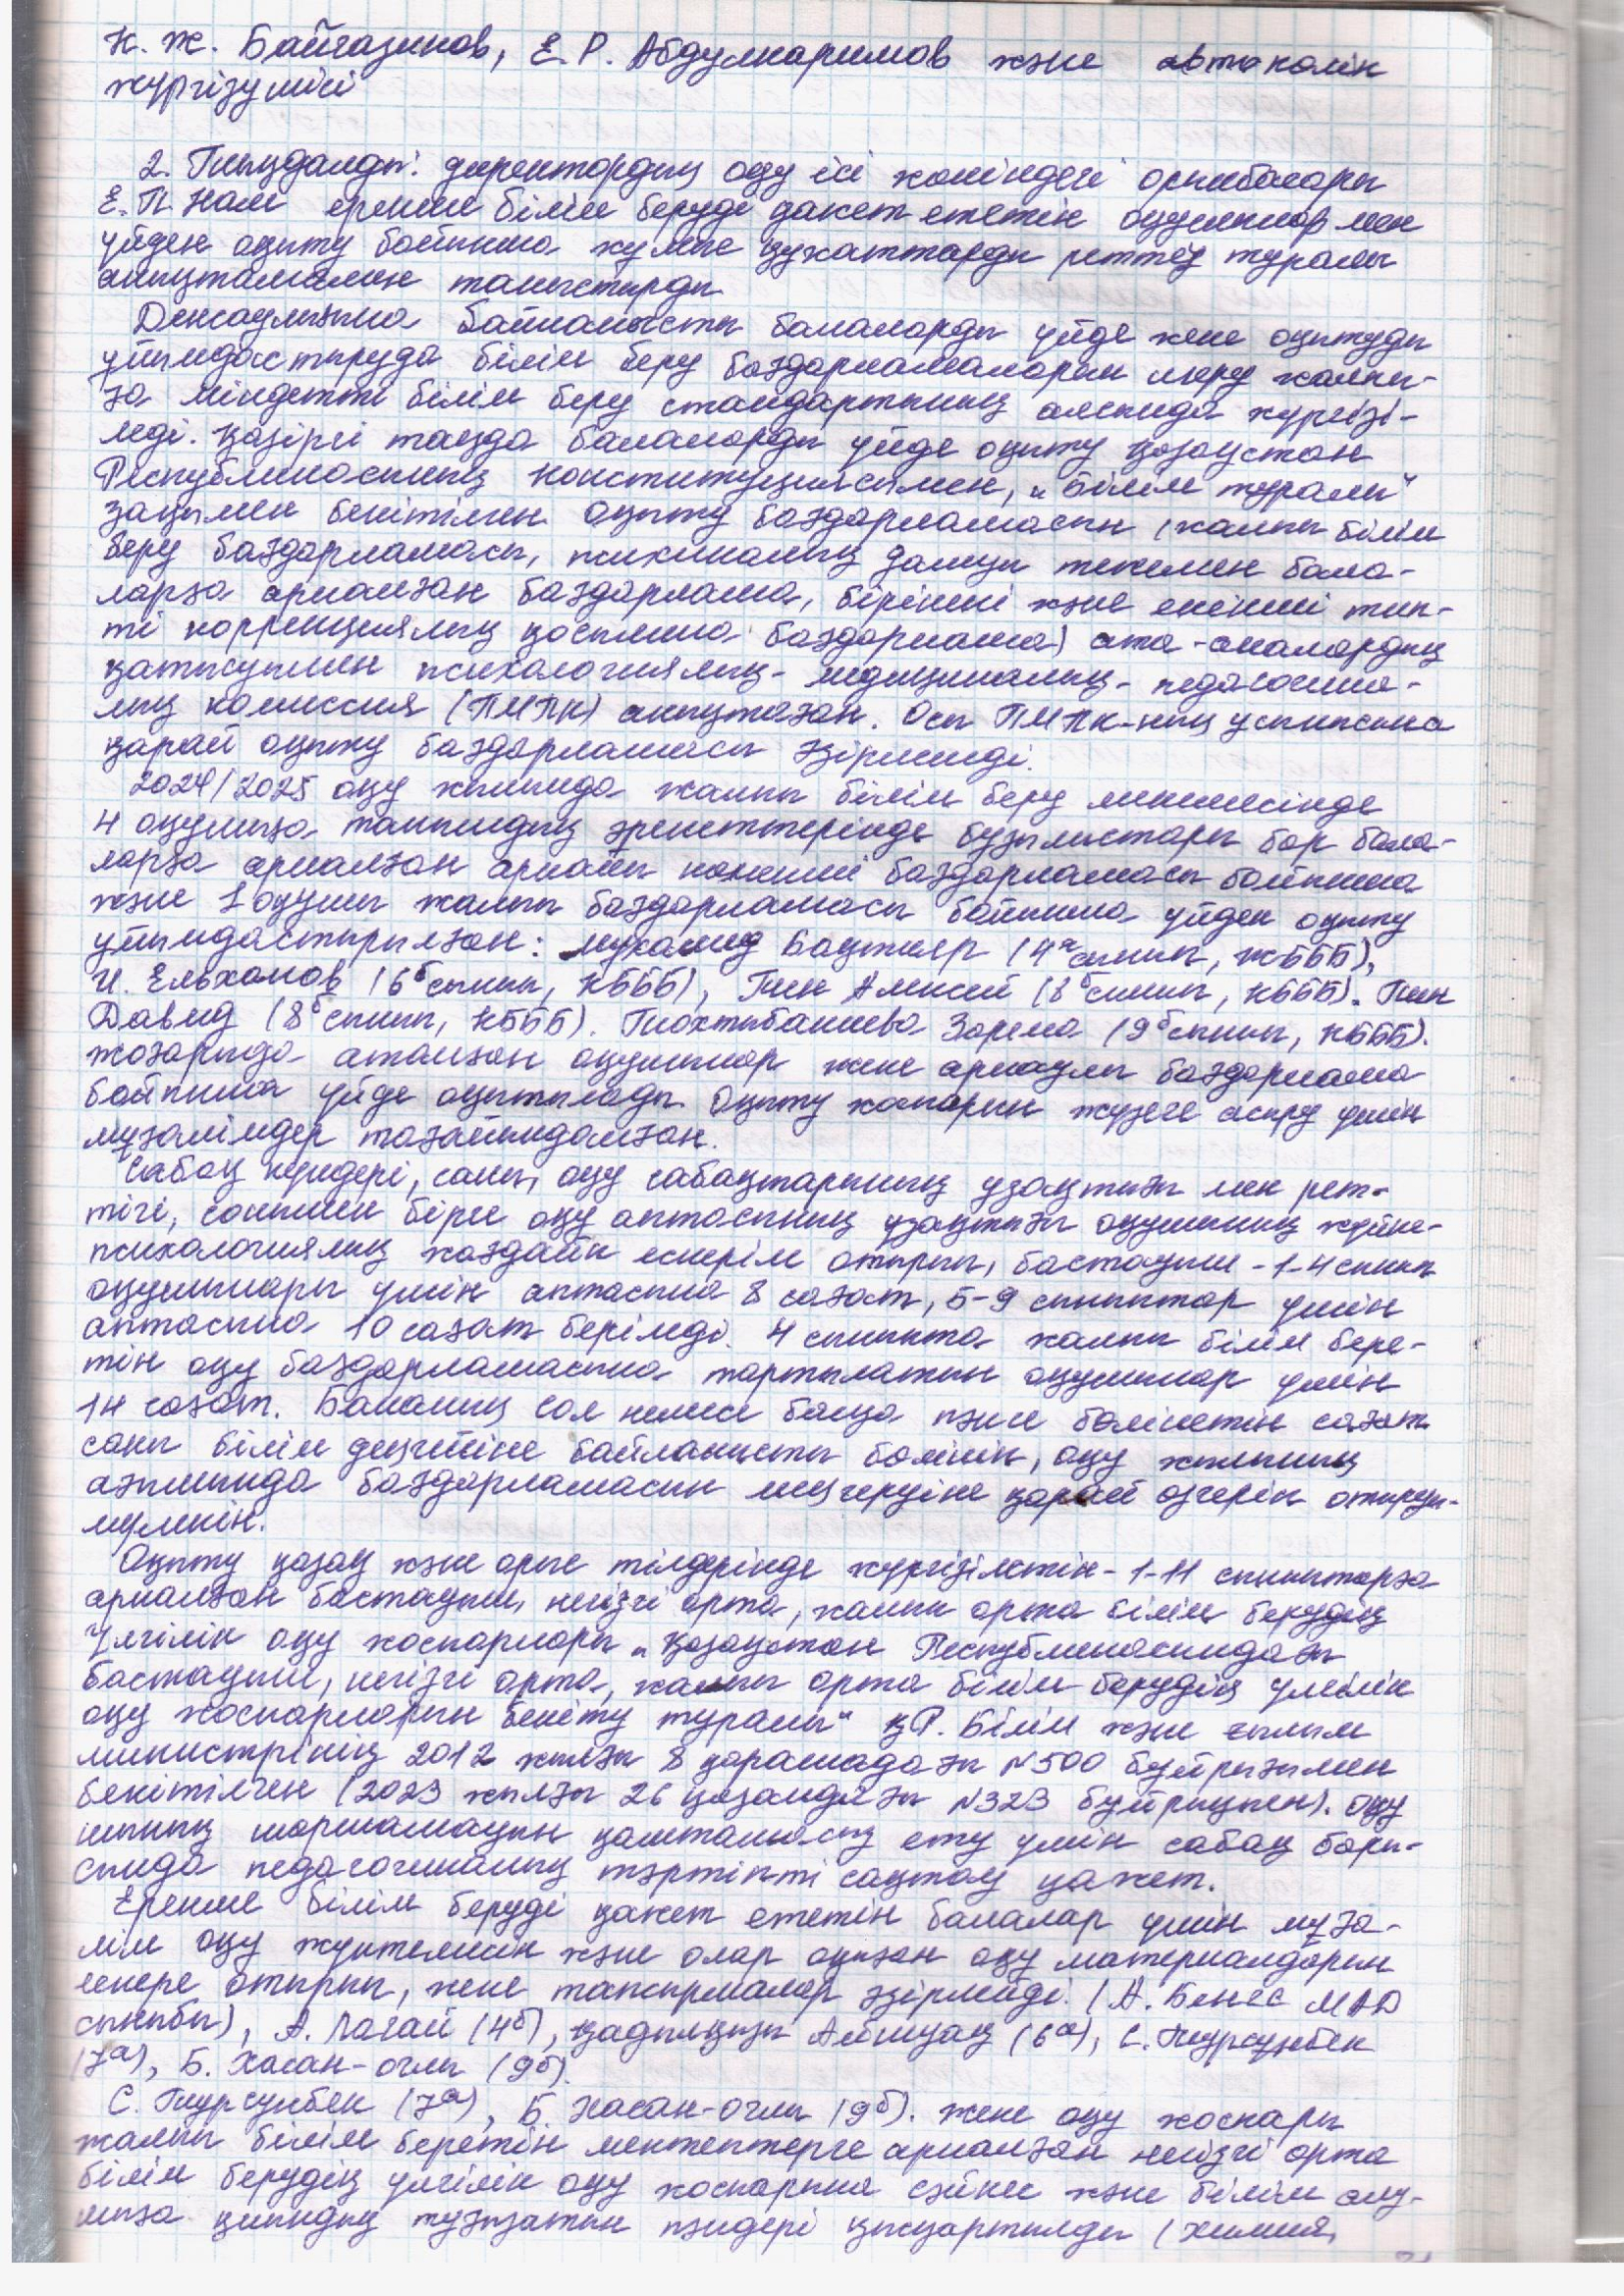 Н. Ж. Байгазинов, Е. Р. Абдулкаримов және автокөлік
жүргізушісі
2. Тыңдалды: директордың оқу ісі жөніндегі орынбасары
Е. П. Нам ерекше білім беруді қажет ететін оқушылармен
үйден оқыту бойынша жұмыс құжаттарды реттеу туралы
анықтамамен таныстырды.
Денсаулығына байланысты балаларды үйде жеке оқытуды
ұйымдастыруда білім беру бағдарламаларын меру жалпы-
ға міндетті білім беру стандартының аясында жүргізі-
леді. Қазіргі таңда балаларды үйде оқыту Қазақстан
Республикасының Конституциясымен, "Білім туралы"
заңымен бекітілген. Оқыту бағдарламасын (жалпы білім
беру бағдарламасы, психикалық дамуы тежелген бала-
ларға арналған бағдарлама, бірінші және екінші тип-
ті коррекциялық қосымша бағдарлама) ата-аналардың
қатысуымен психологиялық-медициналық-педагогика-
лық комиссия (ПМПК) анықтаған. Осы ПМПК-ның ұсынысына
қарай оқыту бағдарламасы әзірленді.
2024/2025 оқу жылында жалпы білім беру мекемесінде
4 оқушыға танымдық әрекеттерінде бұзылыстары бар бала-
ларға арналған арнайы кешенді бағдарламасы бойынша
және 1 оқушы жалпы бағдарламасы бойынша үйден оқыту
ұйымдастырылған: Мухамед Бақтияр (4а сынып, ЖБББ),
И. Ельханов (6б сынып, КБББ), Тин Алексей (8б сынып, КБББ). Тин
Давид (8б сынып, КБББ). Тохтыбакиева Зарема (9б сынып, КБББ).
Жоғарыда аталған оқушылар жеке арнаулы бағдарлама
бойынша үйде оқытылады. Оқыту жоспарын жүзеге асыру үшін
мұғалімдер тағайындалған.
Сабақ күндері, саны, оқу сабақтарының ұзақтығы мен рет-
тігі, сонымен бірге оқу аптасының ұзақтығы оқушының жүйке-
психологиялық жағдайын ескеріп отырып, бастауыш - 1-4 сынып
оқушылары үшін аптасына 8 сағат, 5-9 сыныптар үшін
аптасына 10 сағат беріледі. 4 сыныпта жалпы білім бере-
тін оқу бағдарламасына тартылатын оқушылар үшін
14 сағат. Баланың сол немесе басқа пәнге бөлінетін сағат
саны білім деңгейіне байланысты бөлініп, оқу жылының
ағымында бағдарламасын меңгеруіне қарай өзгеріп отыруы-
мүмкін.
Оқыту қазақ және орыс тілдерінде жүргізілетін - 1-11 сыныптарға
арналған бастауыш, негізгі орта, жалпы орта білім берудің
үлгілік оқу жоспарлары "Қазақстан Республикасындағы
бастауыш, негізгі орта, жалпы орта білім берудің үлгілік
оқу жоспарларын бекіту туралы" ҚР. Білім және ғылым
министрінің 2012 жылғы 8 қарашадағы №500 бұйрығымен
бекітілген (2023 жылғы 26 қазандағы №323 бұйрықпен). Оқу
шының шаршамауын қамтамасыз ету үшін сабақ бары-
сында педагогикалық тәртіпті сақтау қажет.
Ерекше білім беруді қажет ететін балалар үшін мұға-
лім оқу жүктемесін және олар оқыған оқу материалдарын
ескере отырып, жеке тапсырмалар әзірлейді. (А. Бенес МАД
сыныбы), А. Лагай (4б), Қадылқызы Айшуақ (6а), С. Турсунбек
(7а), Б. Хасан-оглы (9б).
С. Турсунбек (7а), Б. Хасан-оглы (9б). Жеке оқу жоспары
жалпы білім беретін мектептерге арналған негізгі орта
білім берудің үлгілік оқу жоспарына сәйкес және білім алу-
шыға қиындық туғызатын пәндері қысқартылды (химия,